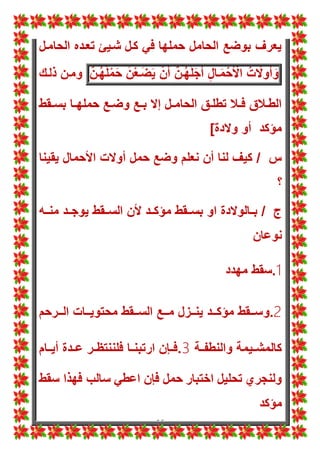 يعرف بوضع الحامل حملها في كل شيئ تعده الحامل
وَأُولَاتُ الْأَحْمَالِ أَجَلُهُنَّ أَنْ يَضَعْنَ حَمْلَهُنَّ ومن ذلك
الطلاق فلا تطلق الحامل إلا بع وضع حملها بسقط
مؤكد أو ولادة]
س / كيف لنا أن نعلم وضع حمل أولات الأحمال يقينا
؟
ج / بالولادة او بسقط مؤكد لأن السقط يوجد منه
نوعان
1.سقط مهدد
2.وسقط مؤكد ينزل مع السقط محتويات الرحم
كالمشيمة والنطفة 3.فإن ارتبنا فلننتظر عدة أيام
ولنجري تحليل اختبار حمل فإن اعطي سالب فهذا سقط
مؤكد